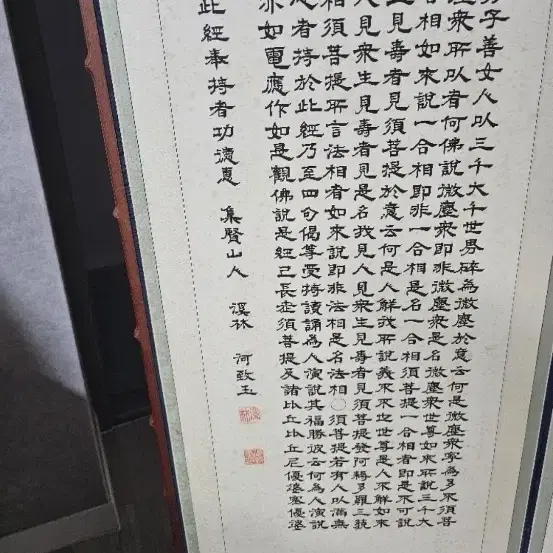 子善女人以三千大千世界碎為微塵於意云何是微塵衆寧為多不須菩
塵衆所以者何佛說微塵衆即非微塵衆是名微塵衆世尊如來所說三千大
合相如來說一合相即非一合相是名一合相須菩提一合相者即是不可說
見壽者見須菩提於意云何是人解我所說義不不也世尊是人不解如來
人見衆生見壽者見是名我見人見衆生見壽者見須菩提發阿耨多羅三藐
相須菩提所言法相者如來說即非法相是名法相○須菩提若有人以滿無
心者持於此經乃至四句偈等受持讀誦為人演說其福勝彼云何為人演說
亦如電應作如是觀佛說是經已長老須菩提及諸比丘比丘尼優婆塞優婆
此經奉持者功德惠 集賢山人 溪林 河致玉